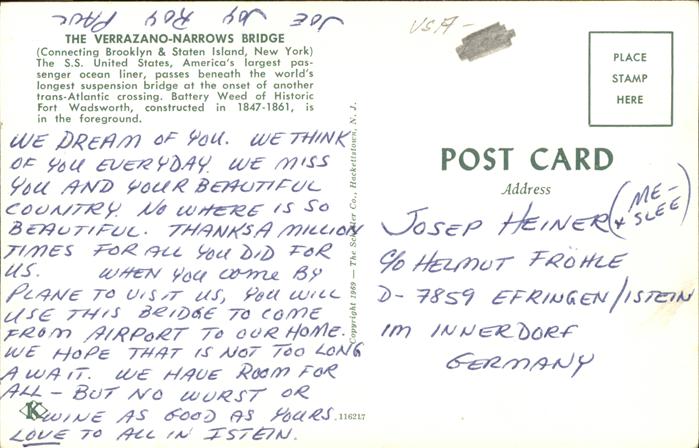 JOE JOY ROY PAUL
THE VERRAZANO-NARROWS BRIDGE
(Connecting Brooklyn & Staten Island, New York)
The S.S. United States, America's largest pas-
senger ocean liner, passes beneath the world's
longest suspension bridge at the onset of another
trans-Atlantic crossing. Battery Weed of Historic
Fort Wadsworth, constructed in 1847-1861, is
in the foreground.
WE DREAM OF YOU. WE THINK
OF YOU EVERYDAY. WE MISS
YOU AND YOUR BEAUTIFUL
COUNTRY. NO WHERE IS SO
BEAUTIFUL. THANKS A MILLION
TIMES FOR ALL YOU DID FOR
US. WHEN YOU COME BY
PLANE TO VISIT US, YOU WILL
USE THIS BRIDGE TO COME
FROM AIRPORT TO OUR HOME.
WE HOPE THAT IS NOT TOO LONG
A WAIT. WE HAVE ROOM FOR
ALL - BUT NO WURST OR
WINE AS GOOD AS YOURS.
LOVE TO ALL IN ISTEIN.
K
116217
Copyright 1969 — The Schafer Co., Hackettstown, N. J.
USA -
PLACE
STAMP
HERE
POST CARD
Address
JOSEP HEINER (ME-
+ SLEE)
C/O HELMUT FRÖHLE
D- 7859 EFRINGEN/ISTEIN
IM INNERDORF
GERMANY